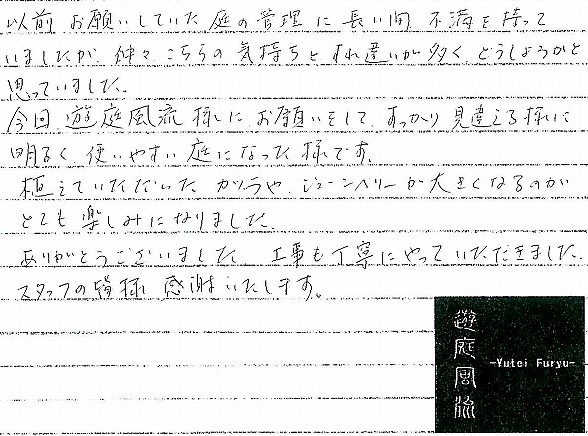 以前 お願いしていた 庭の管理に 長い間 不満を持って
いましたが 中々 こちらの 気持ちと すれ違いが多く どうしょうかと
思っていました。
今回 遊庭風流 様に お願いをして すっかり 見違える様に
明るく 使いやすい 庭になった 様です。
植えていただいた カツラや ジューンベリーが 大きくなるのが
とても 楽しみになりました。
ありがとうございました 工事も丁寧にやっていただきました。
スタッフの皆様 感謝いたします。
遊庭風流
-Yutei Furyu-